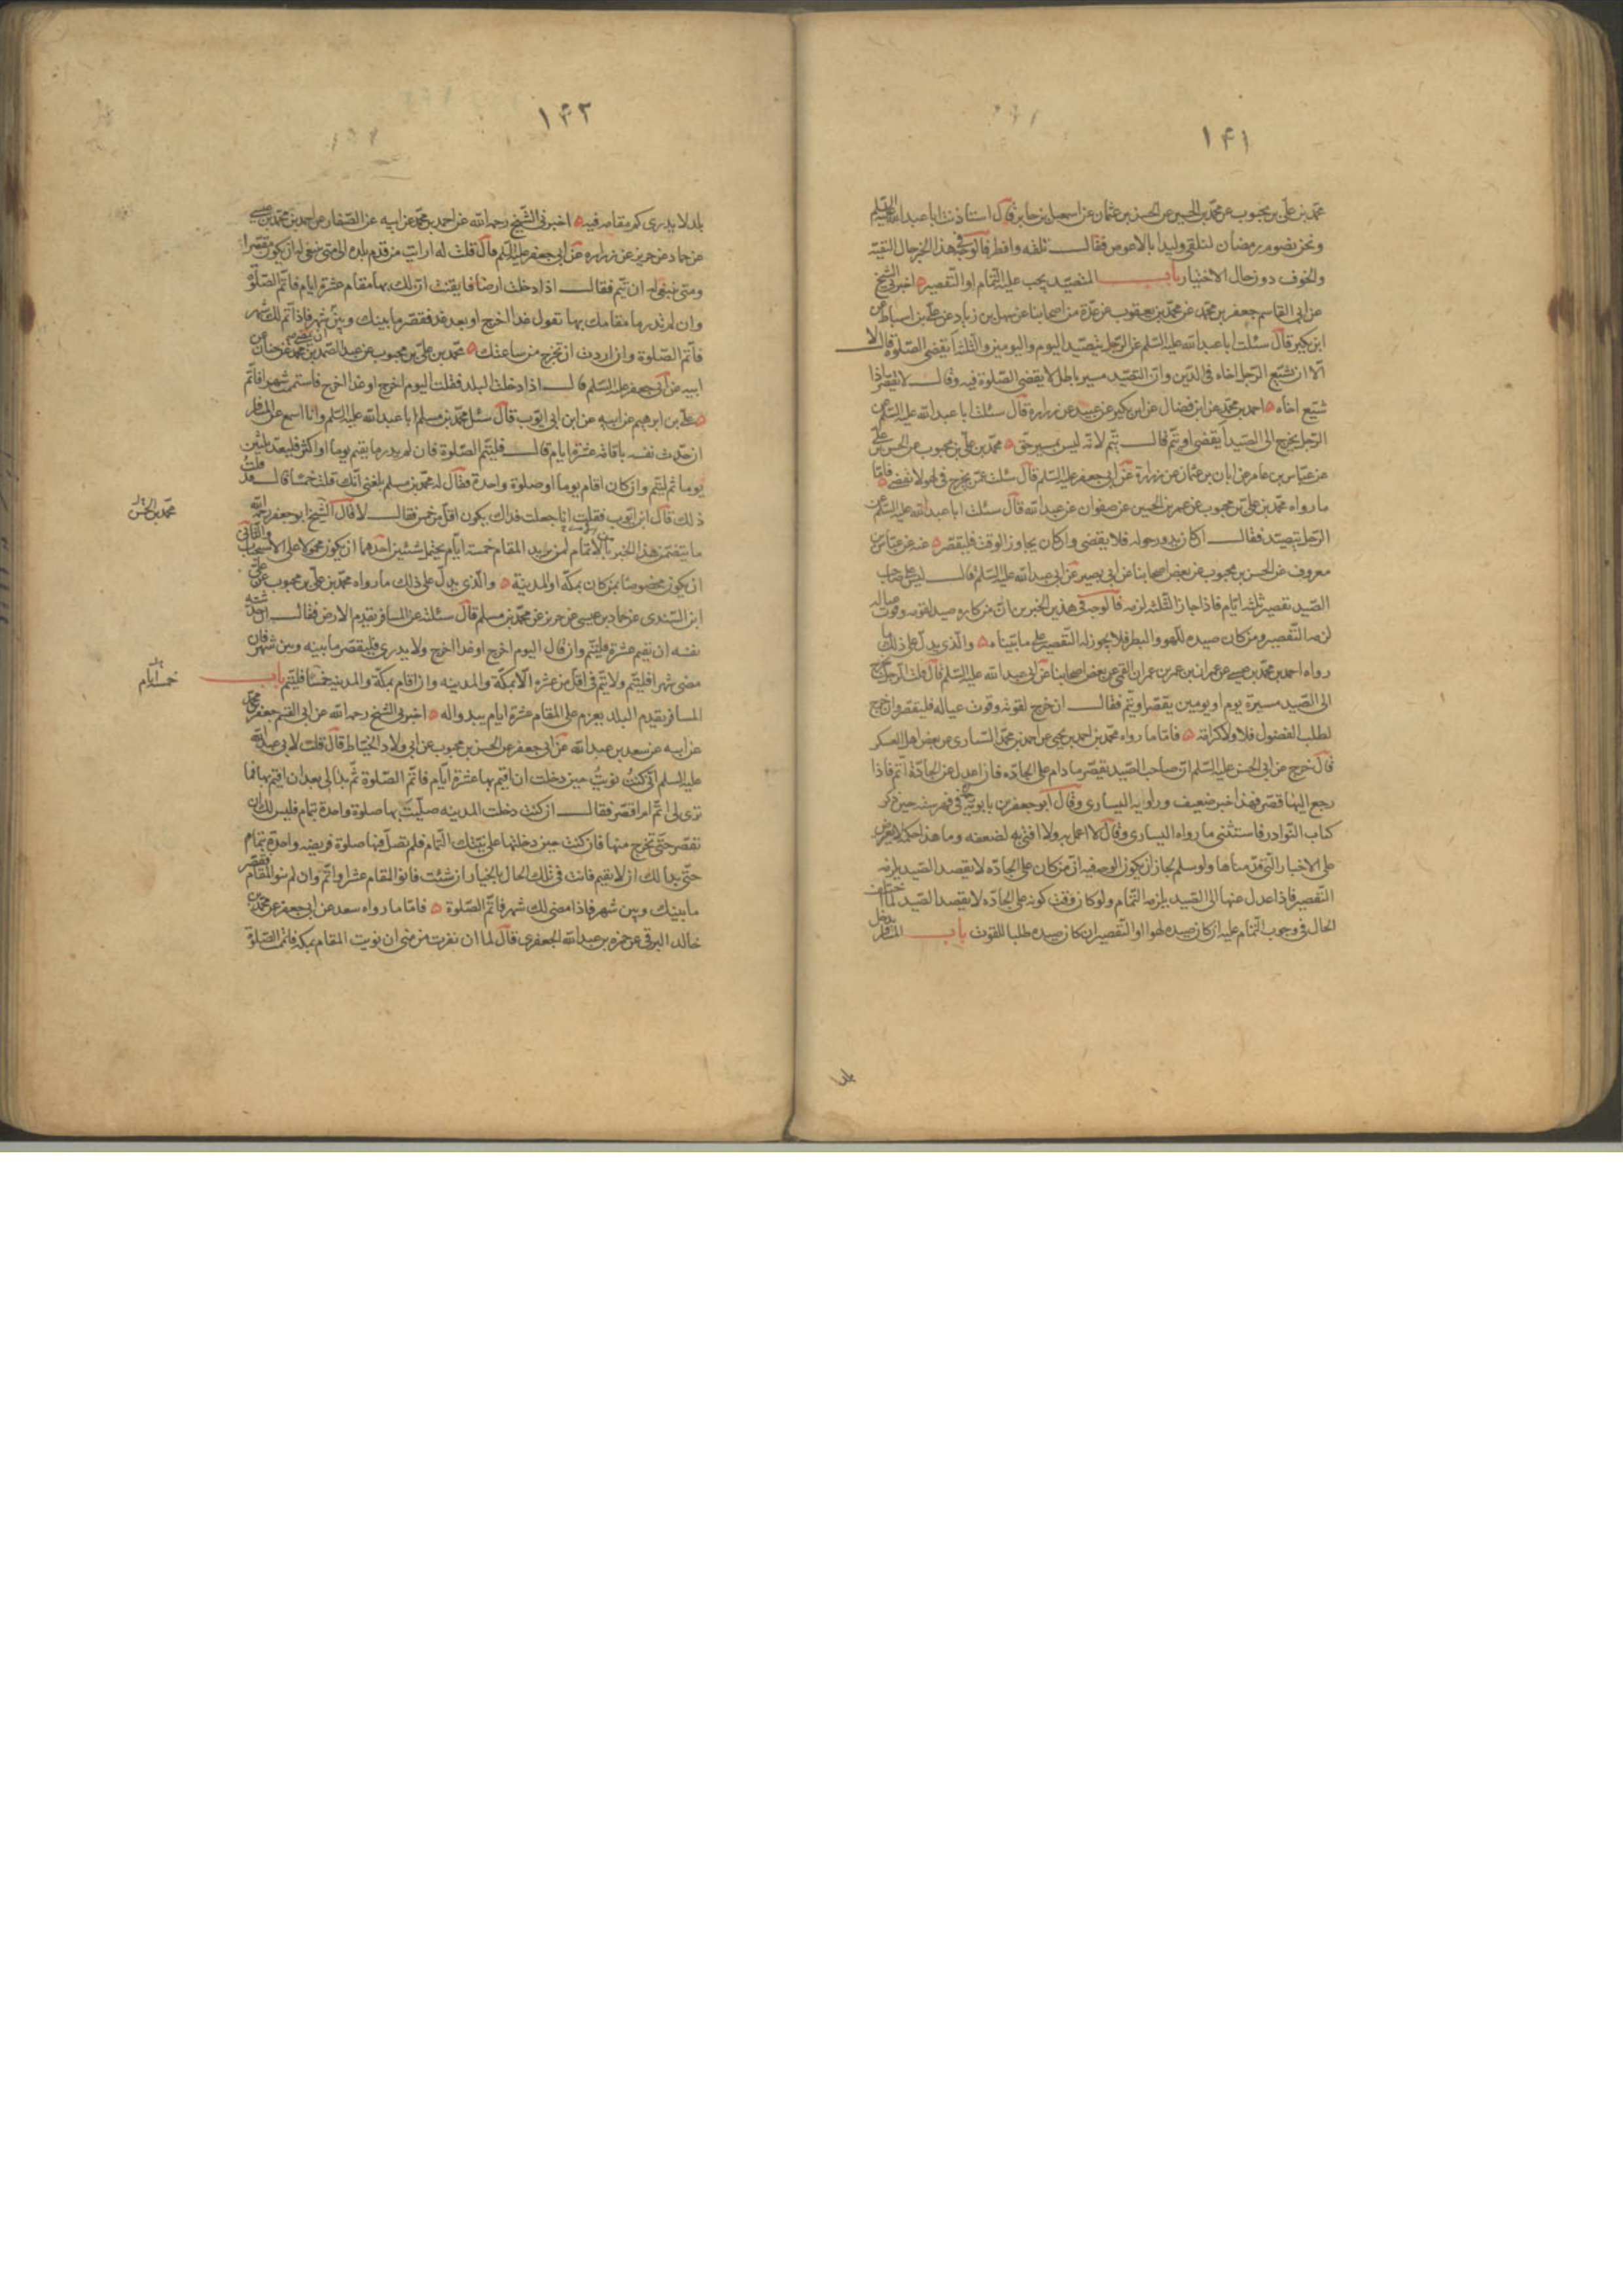 ١۴١
محمد بن علی بن محبوب عن محمد بن الحسین عن الحسن بن عثمان عن اسمعیل بن جابر قال استاذنت ابا عبدالله علیه السلم
ونحن نصوم رمضان لنلقی ولیدا بالاعوص فقال تلقه وافطر فالوجه فی هذا الخبر حال التقیة
والخوف دون حال الاختیار باب المتصید یجب علیه التمام او التقصیر اخبرنی الشیخ
عن ابی القاسم جعفر بن محمد عن محمد بن یعقوب عن عدة من اصحابنا عن سهل بن زیاد عن علی بن اسباط عن
ابن بکیر قال سئلت ابا عبد الله علیه السلم عن الرجل یتصید الیوم والیومین والثلثة ایقضی الصلوة قال لا
الا ان یشیع الرجل اخاه فی الدین وان التصید مسیر باطل لا یقضی الصلوة فیه وقال لا یقصر اذا
شیع اخاه احمد بن محمد عن ابن فضال عن ابن بکیر عن عبید عن زرارة قال سئلت ابا عبد الله علیه السلم عن
الرجل یخرج الی الصید ایقضی او یتم قال یتم لانه لیس بمسیر حق محمد بن علی بن محبوب عن الحسن بن علی
عن عباس بن عامر عن ابان بن عثمان عن زرارة عن ابی جعفر علیه السلم قال سئلته عمن یخرج فاما
ما رواه محمد بن علی بن محبوب عن عمر بن الحسین عن صفوان عن عبد الله قال سئلت ابا عبد الله علیه السلم عن
الرجل یتصید فقال ان کان یدور حوله فلا یقضی وان کان یجاوز الوقت فلیقصر عنه عن عباس بن
معروف عن الحسن بن محبوب عن بعض اصحابنا عن ابی بصیر عن ابی عبد الله علیه السلم قال لیس علی صاحب
الصید تقصیر ثلثة ایام فاذا جاز الثلثة لزمه فالوجه فی هذین الخبرین ان من کان صیده لقوته وقوت عیاله
لزمه التقصیر ومن کان صیده للهو والبطر فلا یجوز له التقصیر علی ما بیناه والذی یدل علی ذلک ما
رواه احمد بن محمد بن عیسی عن عمران بن عمران القمی عن بعض اصحابنا عن ابی عبد الله علیه السلم قال قلت الرجل یخرج
الی الصید مسیرة یوم او یومین یقصر او یتم فقال ان خرج لقوته وقوت عیاله فلیقصر وان خرج
لطلب الفضول فلا ولا کرامة فاما ما رواه محمد بن احمد بن یحیی عن احمد بن محمد السیاری عن بعض اهل العسکر
قال خرج عن ابی الحسن علیه السلم ان صاحب الصید یقصر مادام علی الجادة فاذا عدل عن الجادة اتم فاذا
رجع الیها قصر فهذا خبر ضعیف وراویه السیاری وقال ابو جعفر بن بابویه فی فهرسته حین ذکر
کتاب النوادر فاستثنی ما رواه السیاری وقال لا اعمل به ولا افتی به لضعفه وما هذا حکمه لا یعترض
علی الاخبار التی قدمناها ولو سلم لجاز ان یکون الوجه فیه ان من کان علی الجادة لا یقصد الصید یلزمه
التقصیر فاذا عدل عنها الی الصید یلزمه التمام ولو کان وقت کونه علی الجادة لا یقصد الصید لما اختلف
الحال فی وجوب التمام علیه ان کان صیده لهوا او التقصیر ان کان صیده طلبا للقوت باب المسافر یدخل
بلدا
١۴٢
بلدا لا یدری کم مقامه فیه اخبرنی الشیخ رحمه الله عن احمد بن محمد عن ابیه عن الصفار عن احمد بن محمد بن عیسی
عن حماد عن حریز عن زرارة عن ابی جعفر علیه السلم قال قلت له ارایت من قدم بلدة الی متی ینبغی له ان یکون مقصرا
ومتی ینبغی له ان یتم فقال اذا دخلت ارضا فایقنت ان لک بها مقام عشرة ایام فاتم الصلوة
وان لم تدر ما مقامک بها تقول غدا اخرج او بعد غد فقصر ما بینک وبین شهر فاذا تم لک شهر
فاتم الصلوة وان اردت ان تخرج من ساعتک محمد بن علی بن محبوب عن عبد الصمد بن محمد عن حنان عن
ابیه عن ابی جعفر علیه السلم قال اذا دخلت البلد فقلت الیوم اخرج او غدا اخرج فاستتمت شهرا فاتم
علی بن ابرهیم عن ابیه عن ابن ابی ایوب قال سئل محمد بن مسلم ابا عبد الله علیه السلم وانا اسمع عن المسافر
ان حدث نفسه باقامة عشرة ایام قال فلیتم الصلوة فان لم یدر ما یقیم یوما او اکثر فلیعد ثلثین
یوما ثم لیتم وان کان اقام یوما او صلوة واحدة فقال له محمد بن مسلم بلغنی انک قلت خمسا قال قد قلت
ذلک قال ابو ایوب فقلت انا جعلت فداک یکون اقل من خمس فقال لا قال الشیخ ابو جعفر رحمه الله
ما یتضمن هذا الخبر من الامر بالاتمام لمن یرید المقام خمسة ایام یحتمل شیئین احدهما ان یکون محمولا علی الاستحباب والثانی
ان یکون مخصوصا بمن کان بمکة او المدینة والذی یدل علی ذلک ما رواه محمد بن علی بن محبوب عن علی
ابن السندی عن حماد بن عیسی عن حریز عن محمد بن مسلم قال سئلته عن المسافر یقدم الارض فقال ان حدثته
نفسه ان یقیم عشرة فلیتم وان قال الیوم اخرج او غدا اخرج ولا یدری فلیقصر ما بینه وبین شهر فان
مضی شهر فلیتم ولا یتم فی اقل من عشرة الا بمکة والمدینة وان اقام بمکة والمدینة خمسا فلیتم باب
المسافر یقدم البلد یعزم علی المقام عشرة ایام یبدو له اخبرنی الشیخ رحمه الله عن ابی القسم جعفر بن محمد
عن ابیه عن سعد بن عبد الله عن ابی جعفر عن الحسن بن محبوب عن ابی ولاد الحناط قال قلت لابی عبد الله
علیه السلم انی کنت نویت حین دخلت ان اقیم بها عشرة ایام فاتم الصلوة ثم بدا لی بعد ان اقیم بها فما
تری لی اتم ام اقصر فقال ان کنت دخلت المدینة صلیت بها صلوة واحدة بتمام فلیس لک ان
تقصر حتی تخرج منها فان کنت حین دخلتها علی نیتک التمام فلم تصل فیها صلوة فریضة واحدة بتمام
حتی بدا لک ان لا تقیم فانت فی تلک الحال بالخیار ان شئت فانو المقام عشرا واتم وان لم تنو المقام فقصر
ما بینک وبین شهر فاذا مضی لک شهر فاتم الصلوة فاما ما رواه سعد عن ابی جعفر عن محمد بن
خالد البرقی عن حمزة بن عبد الله الجعفری قال لما ان نفرت من منی نویت المقام بمکة فاتممت الصلوة
محمد بن الحسن
خمسة ایام